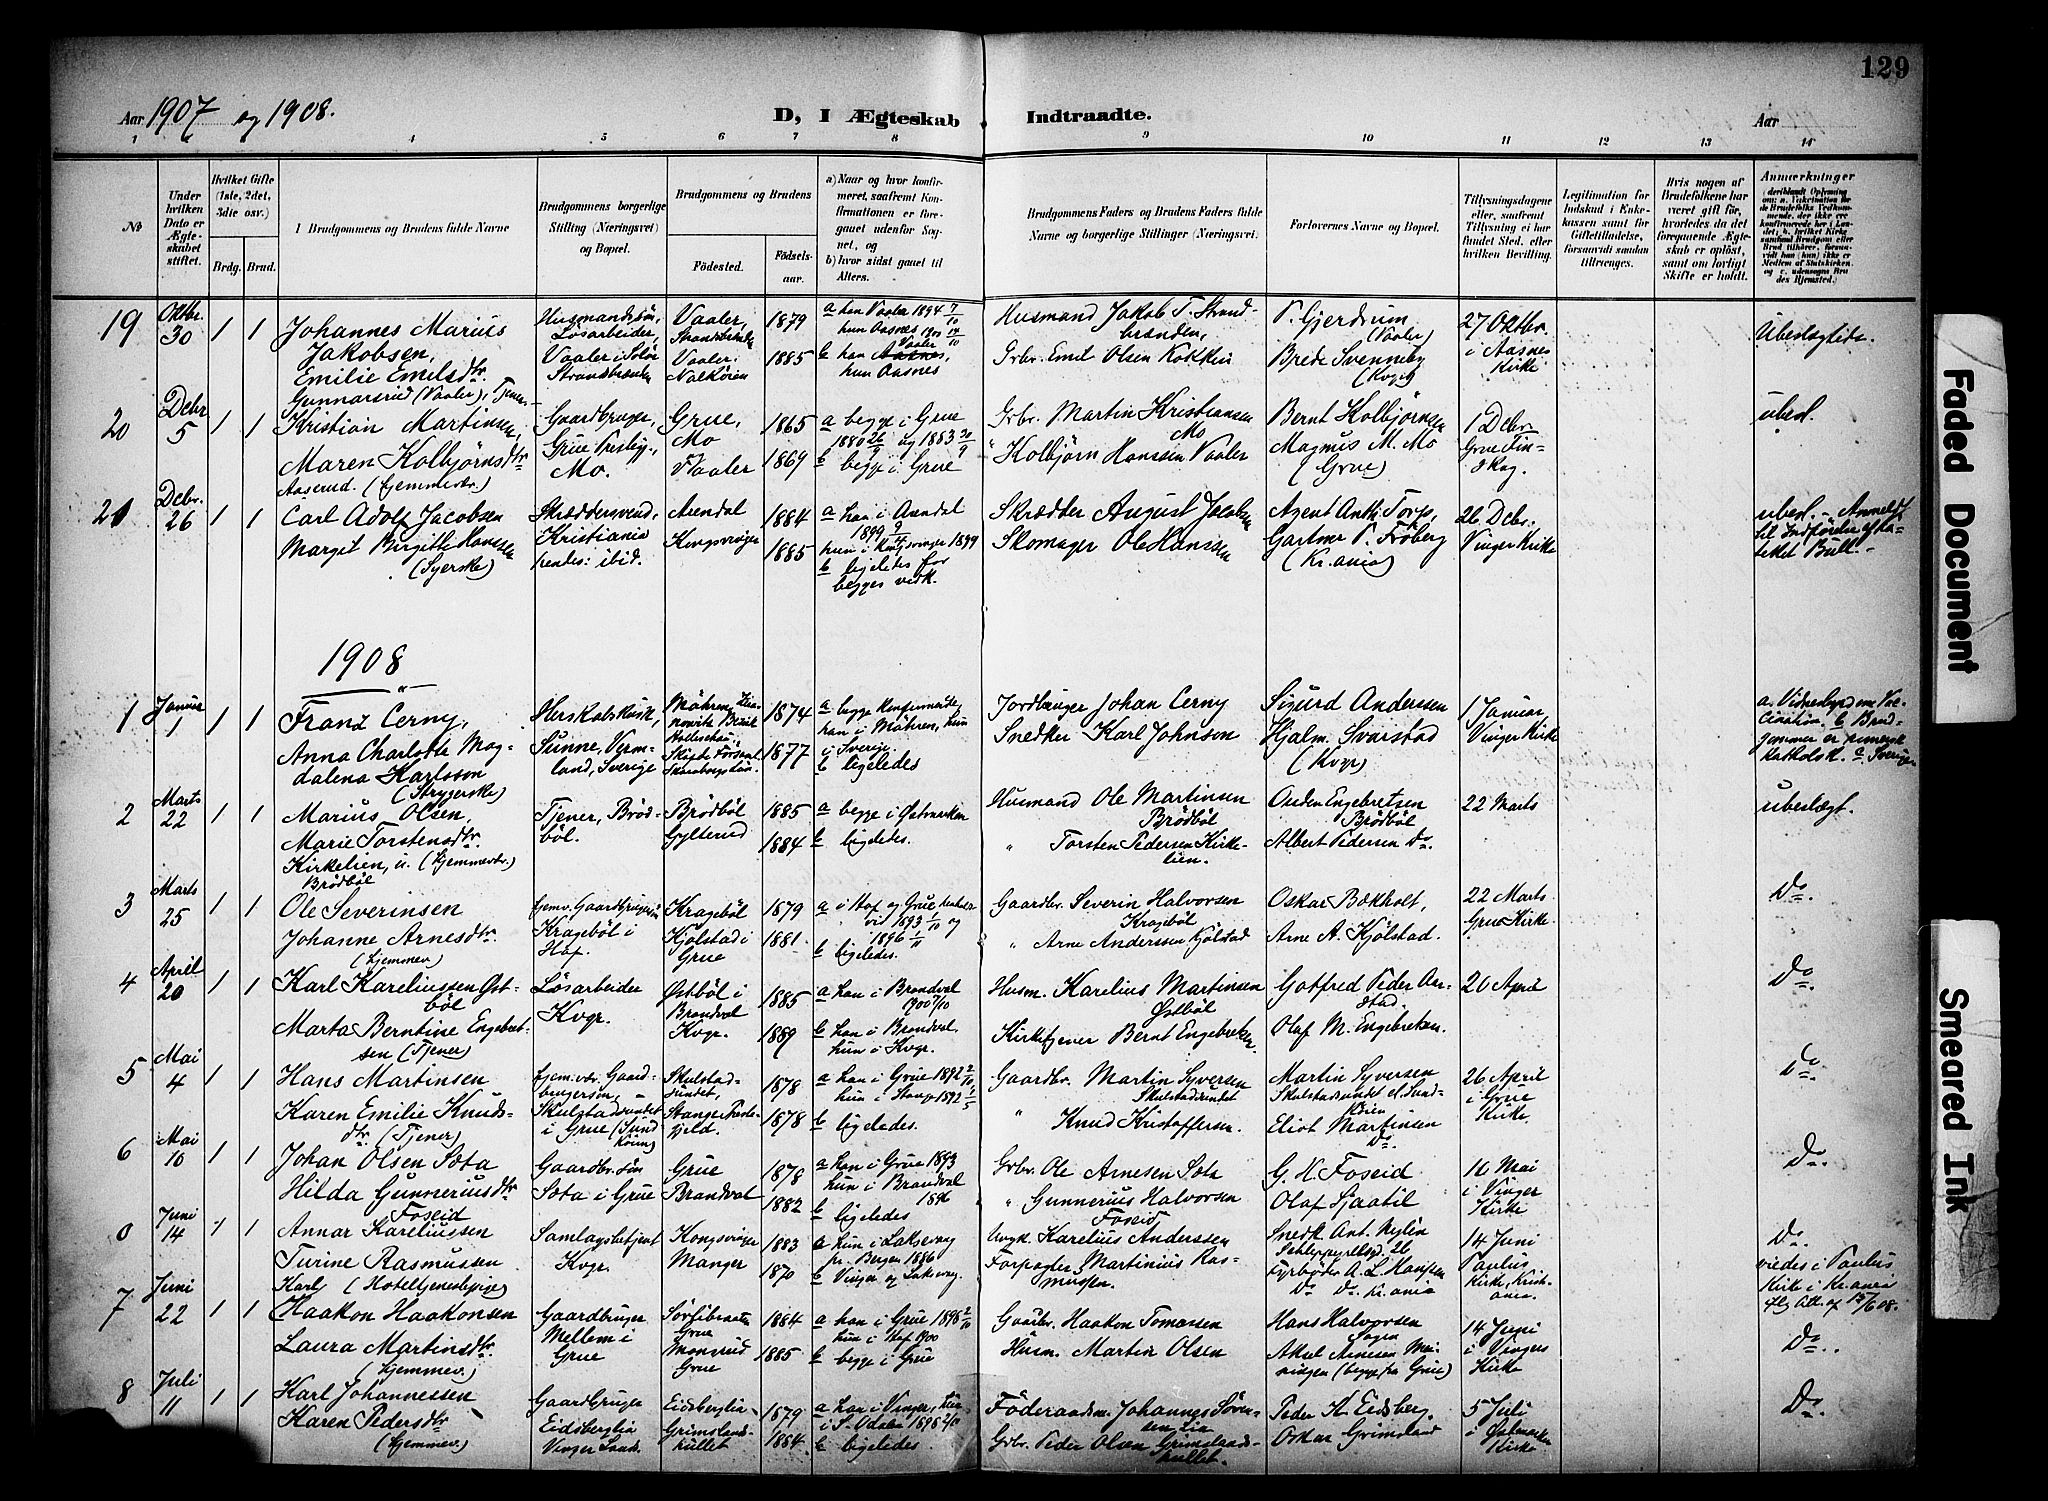 129
Aar 1907 og 1908.
D, I Ægteskab
Indtraadte.
Aar
1 4 5 6 7 8 9 10 11 12 13 14
No
Under hvilken Dato er Ægteskabet stiftet.
Hvilket Gifte (1ste, 2det, 3die osv.)
Brdg. Brud.
I Brudgommens og Brudens fulde Navne
Brudgommens borgerlige Stilling (Næringsvei) og Bopæl.
Brudgommens og Brudens
Födested.
Födselsaar.
a) Naar og hvor konfirmeret, saafremt Konfirmationen er foregaaet udenfor Sognet, og
b) hvor sidst gaaet til Alters.
Brudgommens Faders og Brudens Faders fulde Navne og borgerlige Stillinger (Næringsvei).
Forlovernes Navne og Bopæl.
Tillysningsdagene eller, saafremt Tillysning ei har fundet Sted, efter hvilken Bevilling.
Legitimation for Indskud i Enkekassen samt for Giftetilladelse, forsaavidt saadan tiltrænges.
Hvis nogen af Brudefolkene har været gift før, hvorledes da det foregaaende Ægteskab er opløst, samt om lovligt Skifte er holdt.
Anmærkninger
19
Oktbr. 30
1 1
Johannes Marius
Jakobsen,
Emilie Emilsdtr.
Gunnarsrud (Vaaler), Tjener
Husmandssön,
Løsarbeider,
Vaaler i Solør
Strandbrænden
Vaaler,
Strandbrænden
Vaaler,
1879
1885
a han Vaaler 1894 7/10
hun Aasnes 1900 14/10
b han Vaaler,
hun Aasnes
Husmand Jakob T. Strandbrænden,
Grbr. Emil Olsen Kokkin
P. Gjerdrum
(Vaaler)
Brede Svenneby
(Kvgr)
27 Oktbr.
i Aasnes
Kirke
Ubeslægtede.
20
Debr 5
1 1
Kristian Martinsen,
Maren Kolbjørnsdtr
Aaserud. (Hjemmevær.)
Gaardbruger,
Grue Præstegj.,
Mo.
Grue,
Mo
Vaaler
1865
1869
a begge i Grue
1880 26/9 og 1883 30/9
b begge i Grue
Grbr. Martin Kristiansen
Mo
" Kolbjørn Hanssen Vaaler
Bernt Kolbjørnsen
Magnus M. Mo
(Grue)
1 Debr
Grue Finskog.
ubesl.
21
Debr. 26
1 1
Carl Adolf Jacobsen
Margit Birgitte Hanssen
(Syerske)
Skræddersvend,
Kristiania
hendes: ibid.
Arendal
Kongsvinger
1884
1885
a han i Arendal
1899 9/4
hun i Kongsvinger 1899
b ligeledes for
begges vedk.
Skrædder August Jacobsen
Skomager Ole Hanssen
Agent Anth. Torp,
Gartner P. Fröberg
(Kr.ania)
26 Debr.
Vinger Kirke
ubesl. - Anmeldt
til Indförelse af Kateket Bull.-
1908
1
Januar 1
1 1
Franz Cerny,
Anna Charlotte Magdalena Karlsson
(Strygerske)
Herskabskusk,
Sunne, Vermland, Sverige
Mähren,
1874
1877
a begge konfirmerede,
han i Mähren, hun
i Sverige
b ligeledes
Jordbruger Johan Cerny
Snedker Karl Johnson
Sigurd Andersen
Hjalm. Svarstad
(Kvgr)
1 Januar
Vinger Kirke
a. Vidnesbyrd om Vaccination. b. Brudgommen er romersk
katholsk. c. Sverige
2
Marts 22
1 1
Marius Olsen,
Marie Torstensdtr.
Kirkelien, u. (Hjemmevær.)
Brödböl
Tjener, Brödböl.
Brödböl
Gylterud
1885
1884
a begge i Østmarken
b ligeledes.
Husmand Ole Martinsen
Brödböl
" Torsten Pedersen Kirkelien.
Auden Engebretsen
Brödböl
Albert Pedersen Do.
22 Marts
ubeslægt.
3
Marts 25
1 1
Ole Severinsen
Johanne Arnesdtr.
(Hjemmev)
Hjemv. Gaardbrugersön
Krageböl i
Hof.
Krageböl
Kjölstad i
Grue
1879
1881.
a i Hof og Grue henholdsvis 1893 1/10 og
1896 1/11
b ligeledes.
Gaardbr. Severin Halvorsen
Krageböl
" Arne Anderssen Kjölstad
Oskar Bækholt,
Arne A. Kjölstad.
22 Marts
Grue Kirke
Do.
4
April 20
1 1
Karl Kareliussen Østböl
Marta Berntine Engebretsen (Tjener)
Løsarbeider
Kvgr.
Østböl i
Brandval
Kvgr.
1885
1889
a han i Brandval
1900 7/10
b han i Brandval.
hun i Kvgr.
Husm. Karelius Martinsen
Østböl
Kirketjener Bernt Engebretsen.
Gotfred Peder Aarstad.
Olaf M. Engebretsen.
20 April
Do.
5
Mai 4
1 1
Hans Martinsen
Karen Emilie Knudsdtr. (Tjener)
Hjem.vær. Gaardbrugersön,
Skulstadsundet
i Grue (Sundköien)
Skulstadsundet,
Stange Præstegjeld.
1878
1878
a han i Grue 1892 2/10,
hun i Stange 1892 1/5
b ligeledes.
Gaardbr. Martin Syversen
Skulstadsundet
" Knud Kristoffersen.
Martin Syversen
Skulstadsundet el. Sundköien
Eliot Martinsen
Do.
26 April
i Grue
Kirke.
Do.
6
Mai 10
1 1
Johan Olsen Sæta
Hilda Gunneriusdtr
Foseid
Gaardbr. sön
Sæta i Grue
Grue
Brandval
1878
1882
a han i Grue 1893
hun i Brandval
1896
b ligeledes
Grbr. Ole Arnesen Sæta
" Gunnerius Halvorsen
Foseid
G. H. Foseid
Olaf Sjaatil
10 Mai
i Vinger
Kirke
Do.
0
Juni 14
1 1
Annar Kareliussen
Turine Rasmussen
Karly (Hoteltjenestepige)
Samlagsbetjent
Kvgr.
Kongsvinger
Manger
1883
1870
a hun i Laksevaag
pr. Bergen 1886
b Vinger og Laksevaag.
Karelius Anderssen
Forpagter Martinius Rasmussen.
Snedk. Ant. Nylén
Fyrbøder A. L. Hansen
Do Do. Kr.ania
14 Juni
Paulus
Kirke, Kristiania.
Do.
viedes i Paulus
Kirke i Kr.ania
iflg. Att. af 15/6 08.
7
Juni 22
1 1
Haakon Haakonsen
Laura Martinsdtr.
(Hjemmev.)
Gaardbruger
Mellem i
Grue
Grue
Monsrud
Grue
1884
1885
a han i Grue 1898 2/10
hun i Hof 1900
b begge i Grue
Gaardbr. Haakon Tomassen
Husm. Martin Olsen
Hans Halvorsen
Aksel Arnesen
(begge fra Grue)
14 Juni
i Vinger
Kirke
Do..
8
Juli 11
1 1
Karl Johannessen
Karen Pedersdtr
(Hjemmev.)
Gaardbruger
Eidsberglia
Vinger Lands.
Eidsberglia
Grimslandskullet
1879
1884.
a han i Vinger, hun
i S. Odalen 1898 2/10
b ligeledes.
Föderaadsm. Johannes Sörensen Lia
Grbr. Peder Olsen Grimslandskullet.
Peder A. Eidsberg.
Oskar Grimsland
5 Juli
i Østmarken
Kirke
Do.
Faded Document
Smeared Ink